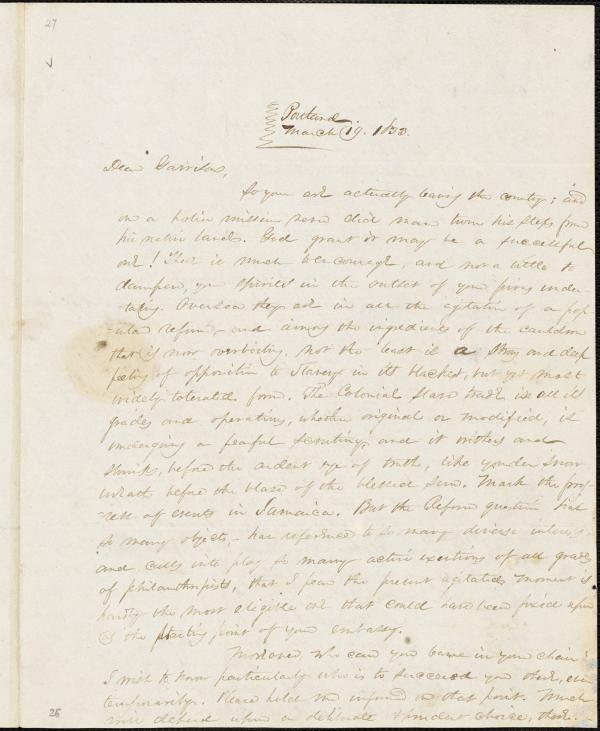 27
Portland
March 19. 1833.
Dear Garrison,
So you are actually leaving the country; and
on a holier mission never did man turn his steps from
his native land. God grant it may be a successful
one! There is much to encourage, and not a little to
dampen, your spirits in the outset of your pious under-
-taking. Oversea they are in all the agitation of a pop-
-ular reform, and among the ingredients of the cauldron
that is now overboiling, not the least is a strong and deep
feeling of opposition to Slavery in its blackest, but yet most
widely tolerated form. The Colonial Slave trade in all its
grades and operations, whether original or modified, is
undergoing a fearful scrutiny, and it withers and
shrinks, before the ardent eye of truth, like yonder snow
wreath before the blaze of the blessed sun. Mark the prog-
-ress of events in Jamaica. But the Reform question has
so many objects, - has reference to so many diverse interests,
and calls into play so many active exertions of all grades
of philanthropists, that I fear the present agitated moment is
hardly the most eligible one that could have been fixed upon
as the starting point of your embassy.
Moreover, who can you leave in your chair?
I wish to know particularly who is to succeed you there, even
temporarily. Please hold me informed on that point. Much
will depend upon a deliberate & prudent choice, there.
28